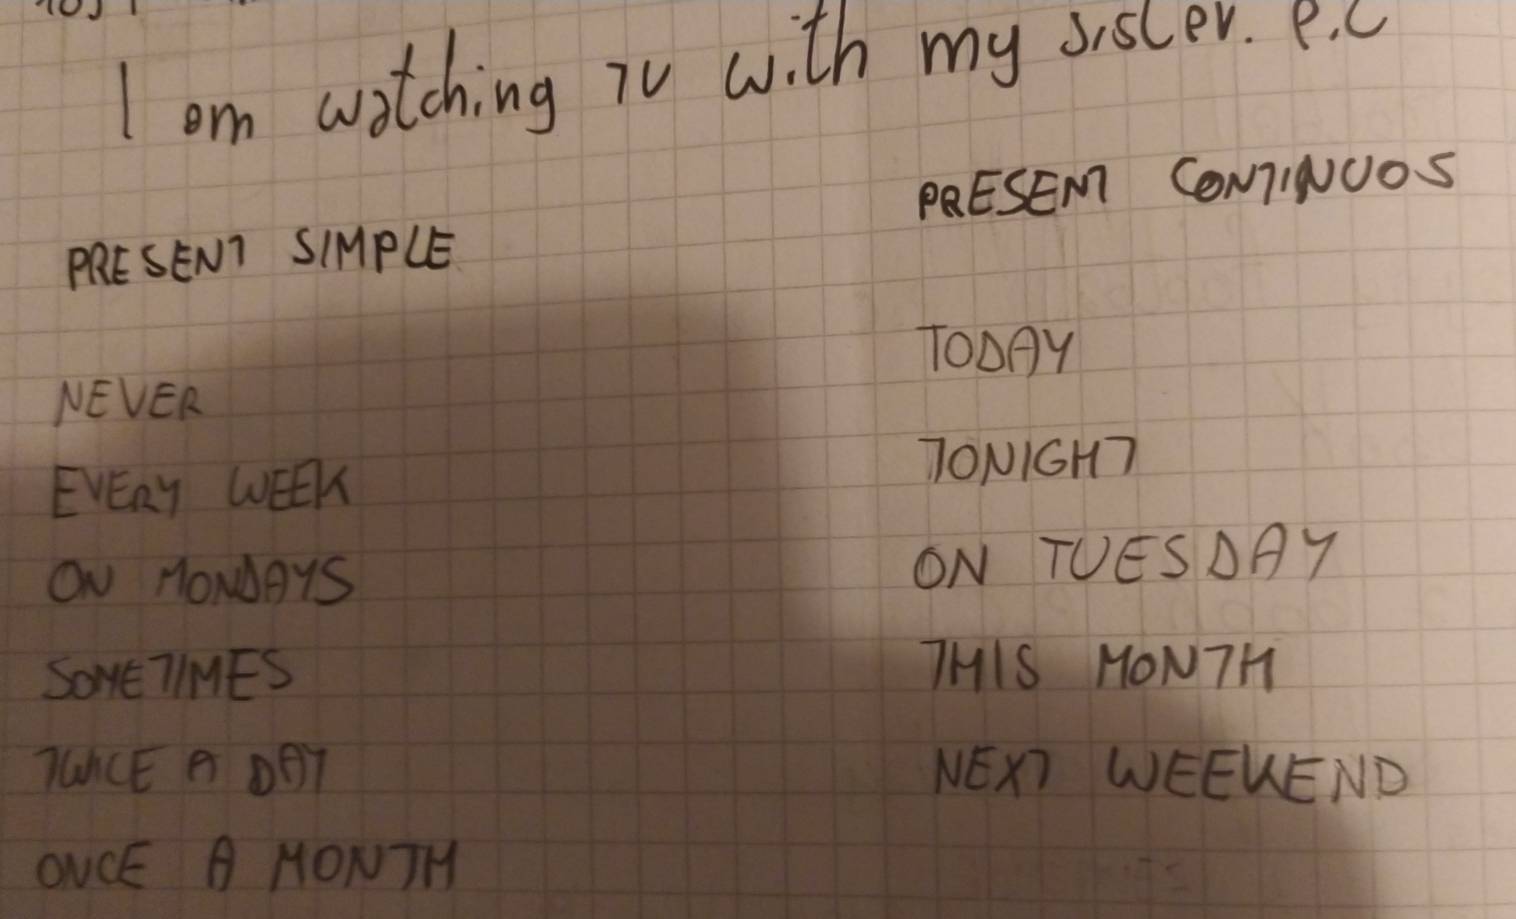 I am watching TV with my sister. P.C
PRESENT SIMPLE
NEVER
EVERY WEEK
ON MONDAYS
SOMETIMES
TWICE A DAY
ONCE A MONTH
PRESENT CONTINUOS
TODAY
TONIGHT
ON TUESDAY
THIS MONTH
NEXT WEEKEND